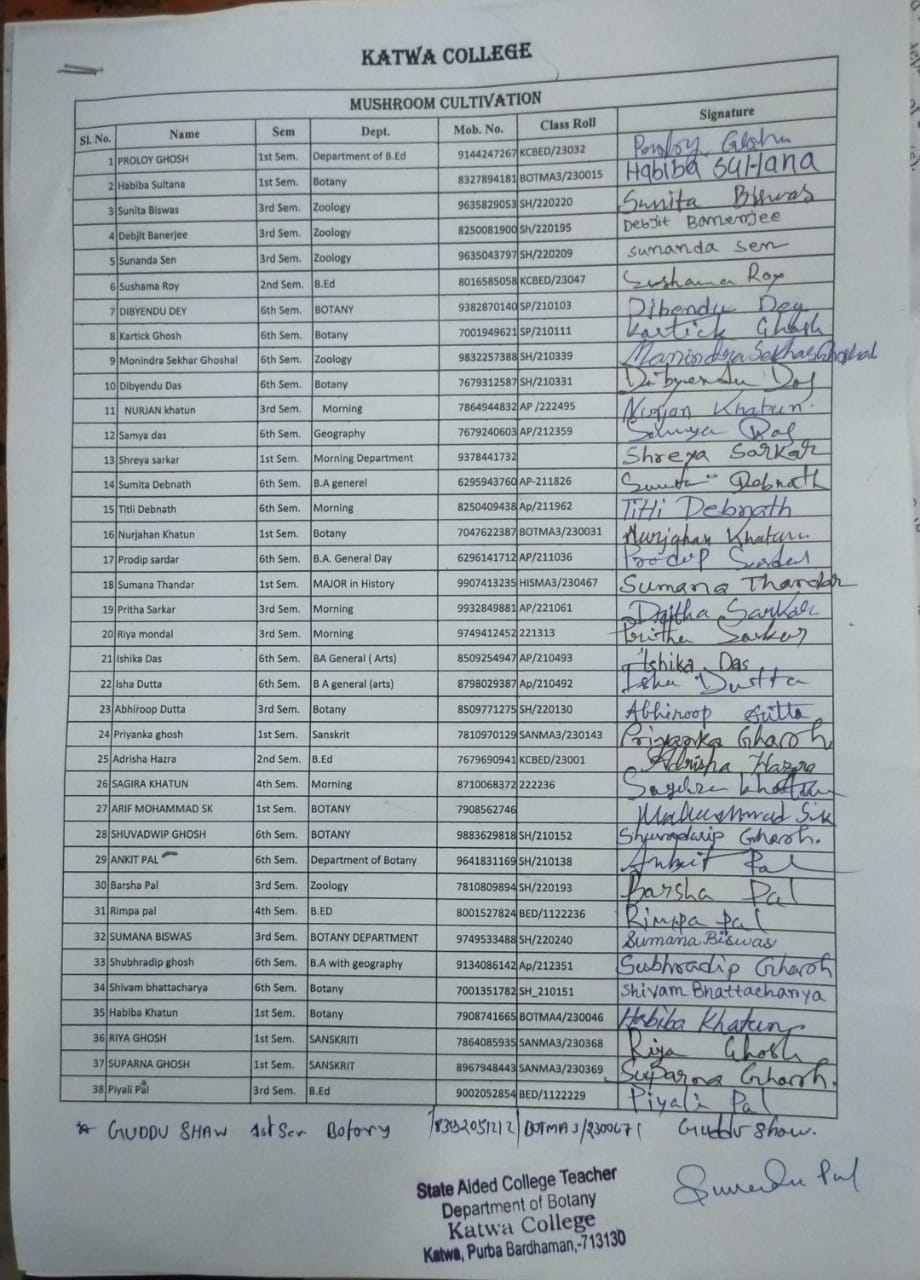 KATWA COLLEGE
MUSHROOM CULTIVATION
Sl. No. Name Sem Dept. Mob. No. Class Roll Signature
1 PROLOY GHOSH 1st Sem. Department of B.Ed 9144247267 KCBED/23032 Proloy Ghosh
2 Habiba Sultana 1st Sem. Botany 8327894181 BOTMA3/230015 Habiba Sultana
3 Sunita Biswas 3rd Sem. Zoology 9635829053 SH/220220 Sunita Biswas
4 Debjit Banerjee 3rd Sem. Zoology 8250081900 Sh/220195 Debjit Banerjee
5 Sunanda Sen 3rd Sem. Zoology 9635043797 SH/220209 sunanda sen
6 Sushama Roy 2nd Sem. B.Ed 8016585058 KCBED/23047 Sushama Roy
7 DIBYENDU DEY 6th Sem. BOTANY 9382870140 SP/210103 Dibendu Dey
8 Kartick Ghosh 6th Sem. Botany 7001949621 SP/210111 Kartick Ghosh
9 Monindra Sekhar Ghoshal 6th Sem. Zoology 9832257388 SH/210339 Manindra Sekhar Ghoshal
10 Dibyendu Das 6th Sem. Botany 7679312587 SH/210331 Dibyendu Das
11 NURJAN khatun 3rd Sem. Morning 7864944832 AP /222495 Nurjan Khatun.
12 Samya das 6th Sem. Geography 7679240603 AP/212359 Samya Das
13 Shreya sarkar 1st Sem. Morning Department 9378441732 Shreya Sarkar
14 Sumita Debnath 6th Sem. B.A generel 6295943760 AP-211826 Sumita Debnath
15 Titli Debnath 6th Sem. Morning 8250409438 Ap/211962 Titli Debnath
16 Nurjahan Khatun 1st Sem. Botany 7047622387 BOTMA3/230031 Nurjahan Khatun
17 Prodip sardar 6th Sem. B.A. General Day 6296141712 AP/211036 Prodip Sardar
18 Sumana Thandar 1st Sem. MAJOR in History 9907413235 HISMA3/230467 Sumana Thandar
19 Pritha Sarkar 3rd Sem. Morning 9932849881 AP/221061 Pritha Sarkar
20 Riya mondal 3rd Sem. Morning 9749412452 221313 Pritha Sarkar
21 Ishika Das 6th Sem. BA General ( Arts) 8509254947 AP/210493 Ishika Das
22 Isha Dutta 6th Sem. B A general (arts) 8798029387 Ap/210492 Isha Dutta
23 Abhiroop Dutta 3rd Sem. Botany 8509771275 SH/220130 Abhiroop Dutta
24 Priyanka ghosh 1st Sem. Sanskrit 7810970129 SANMA3/230143 Priyanka Ghosh
25 Adrisha Hazra 2nd Sem. B.Ed 7679690941 KCBED/23001 Adrisha Hazra
26 SAGIRA KHATUN 4th Sem. Morning 8710068372 222236 Khatun
27 ARIF MOHAMMAD SK 1st Sem. BOTANY 7908562746
28 SHUVADWIP GHOSH 6th Sem. BOTANY 9883629818 SH/210152 Shuvadwip Ghosh.
29 ANKIT PAL 6th Sem. Department of Botany 9641831169 SH/210138 Ankit Pal
30 Barsha Pal 3rd Sem. Zoology 7810809894 SH/220193 Barsha Pal
31 Rimpa pal 4th Sem. B.ED 8001527824 BED/1122236 Rimpa Pal
32 SUMANA BISWAS 3rd Sem. BOTANY DEPARTMENT 9749533488 SH/220240 Sumana Biswas
33 Shubhradip ghosh 6th Sem. B.A with geography 9134086142 Ap/212351 Subhradip Ghosh
34 Shivam bhattacharya 6th Sem. Botany 7001351782 SH_210151 Shivam Bhattacharya
35 Habiba Khatun 1st Sem. Botany 7908741665 BOTMA4/230046 Habiba Khatun
36 RIYA GHOSH 1st Sem. SANSKRITI 7864085935 SANMA3/230368 Riya Ghosh
37 SUPARNA GHOSH 1st Sem. SANSKRIT 8967948443 SANMA3/230369 Suparna Ghosh.
38 Piyali Pal 3rd Sem. B.Ed 9002052854 BED/1122229 Piyali Pal
GUDDU SHAW 1st Sem Botony Guddu Shaw.
State Aided College Teacher
Department of Botany
Katwa College
Katwa, Purba Bardhaman,-713130
Pal